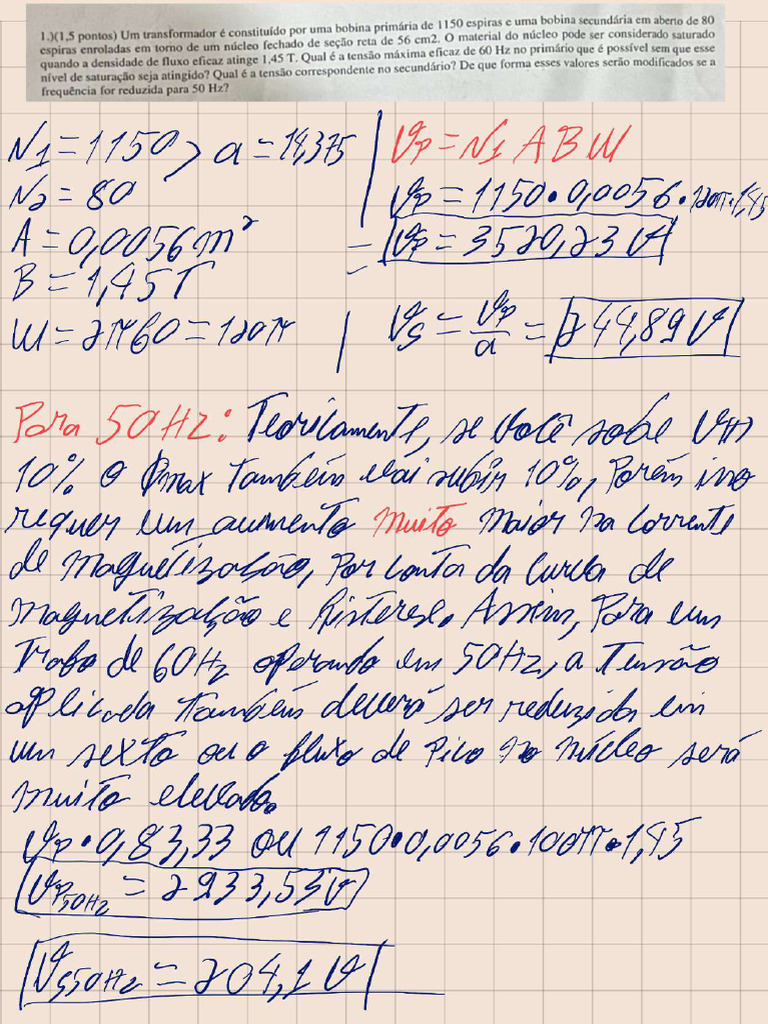 1.)(1,5 pontos) Um transformador é constituído por uma bobina primária de 1150 espiras e uma bobina secundária em aberto de 80
espiras enroladas em torno de um núcleo fechado de seção reta de 56 cm2. O material do núcleo pode ser considerado saturado
quando a densidade de fluxo eficaz atinge 1,45 T. Qual é a tensão máxima eficaz de 60 Hz no primário que é possível sem que esse
nível de saturação seja atingido? Qual é a tensão correspondente no secundário? De que forma esses valores serão modificados se a
frequência for reduzida para 50 Hz?
N1 = 1150 > a = 14,375
N2 = 80
A = 0,0056 m²
B = 1,45T
W = 2π60 = 120π
Vp = N1 A B W
Vp = 1150•0,0056•120π•1,45
= Vp = 3520,23 V
Vs = Vp/a = 244,89 V
Para 50Hz: Teoricamente, se você sobe V em
10% o ϕmax também vai subir 10%, Porém isso
requer um aumento muito maior na corrente
de magnetização, Por conta da curva de
magnetização e Histerese. Assim, Para um
Trafo de 60Hz operando em 50Hz, a Tensão
aplicada também deverá ser reduzida em
um sexto ou o fluxo de Pico no núcleo será
muito elevado.
Vp • 0,83,33 ou 1150•0,0056•100π•1,45
Vp50Hz = 2933,53V
Vs50Hz = 204,1 V